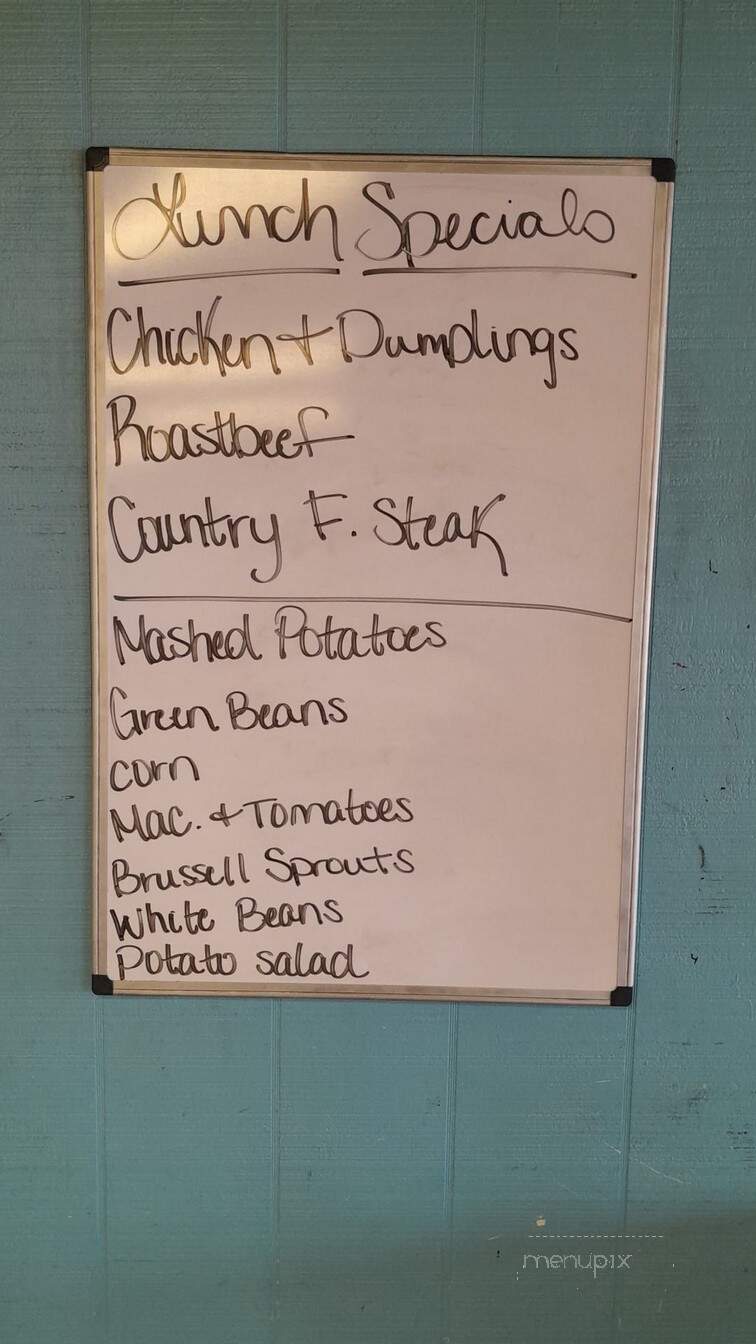 Lunch Specials
Chicken + Dumplings
Roastbeef
Country F. Steak
Mashed Potatoes
Green Beans
corn
Mac. + Tomatoes
Brussell Sprouts
White Beans
Potato salad
menupix